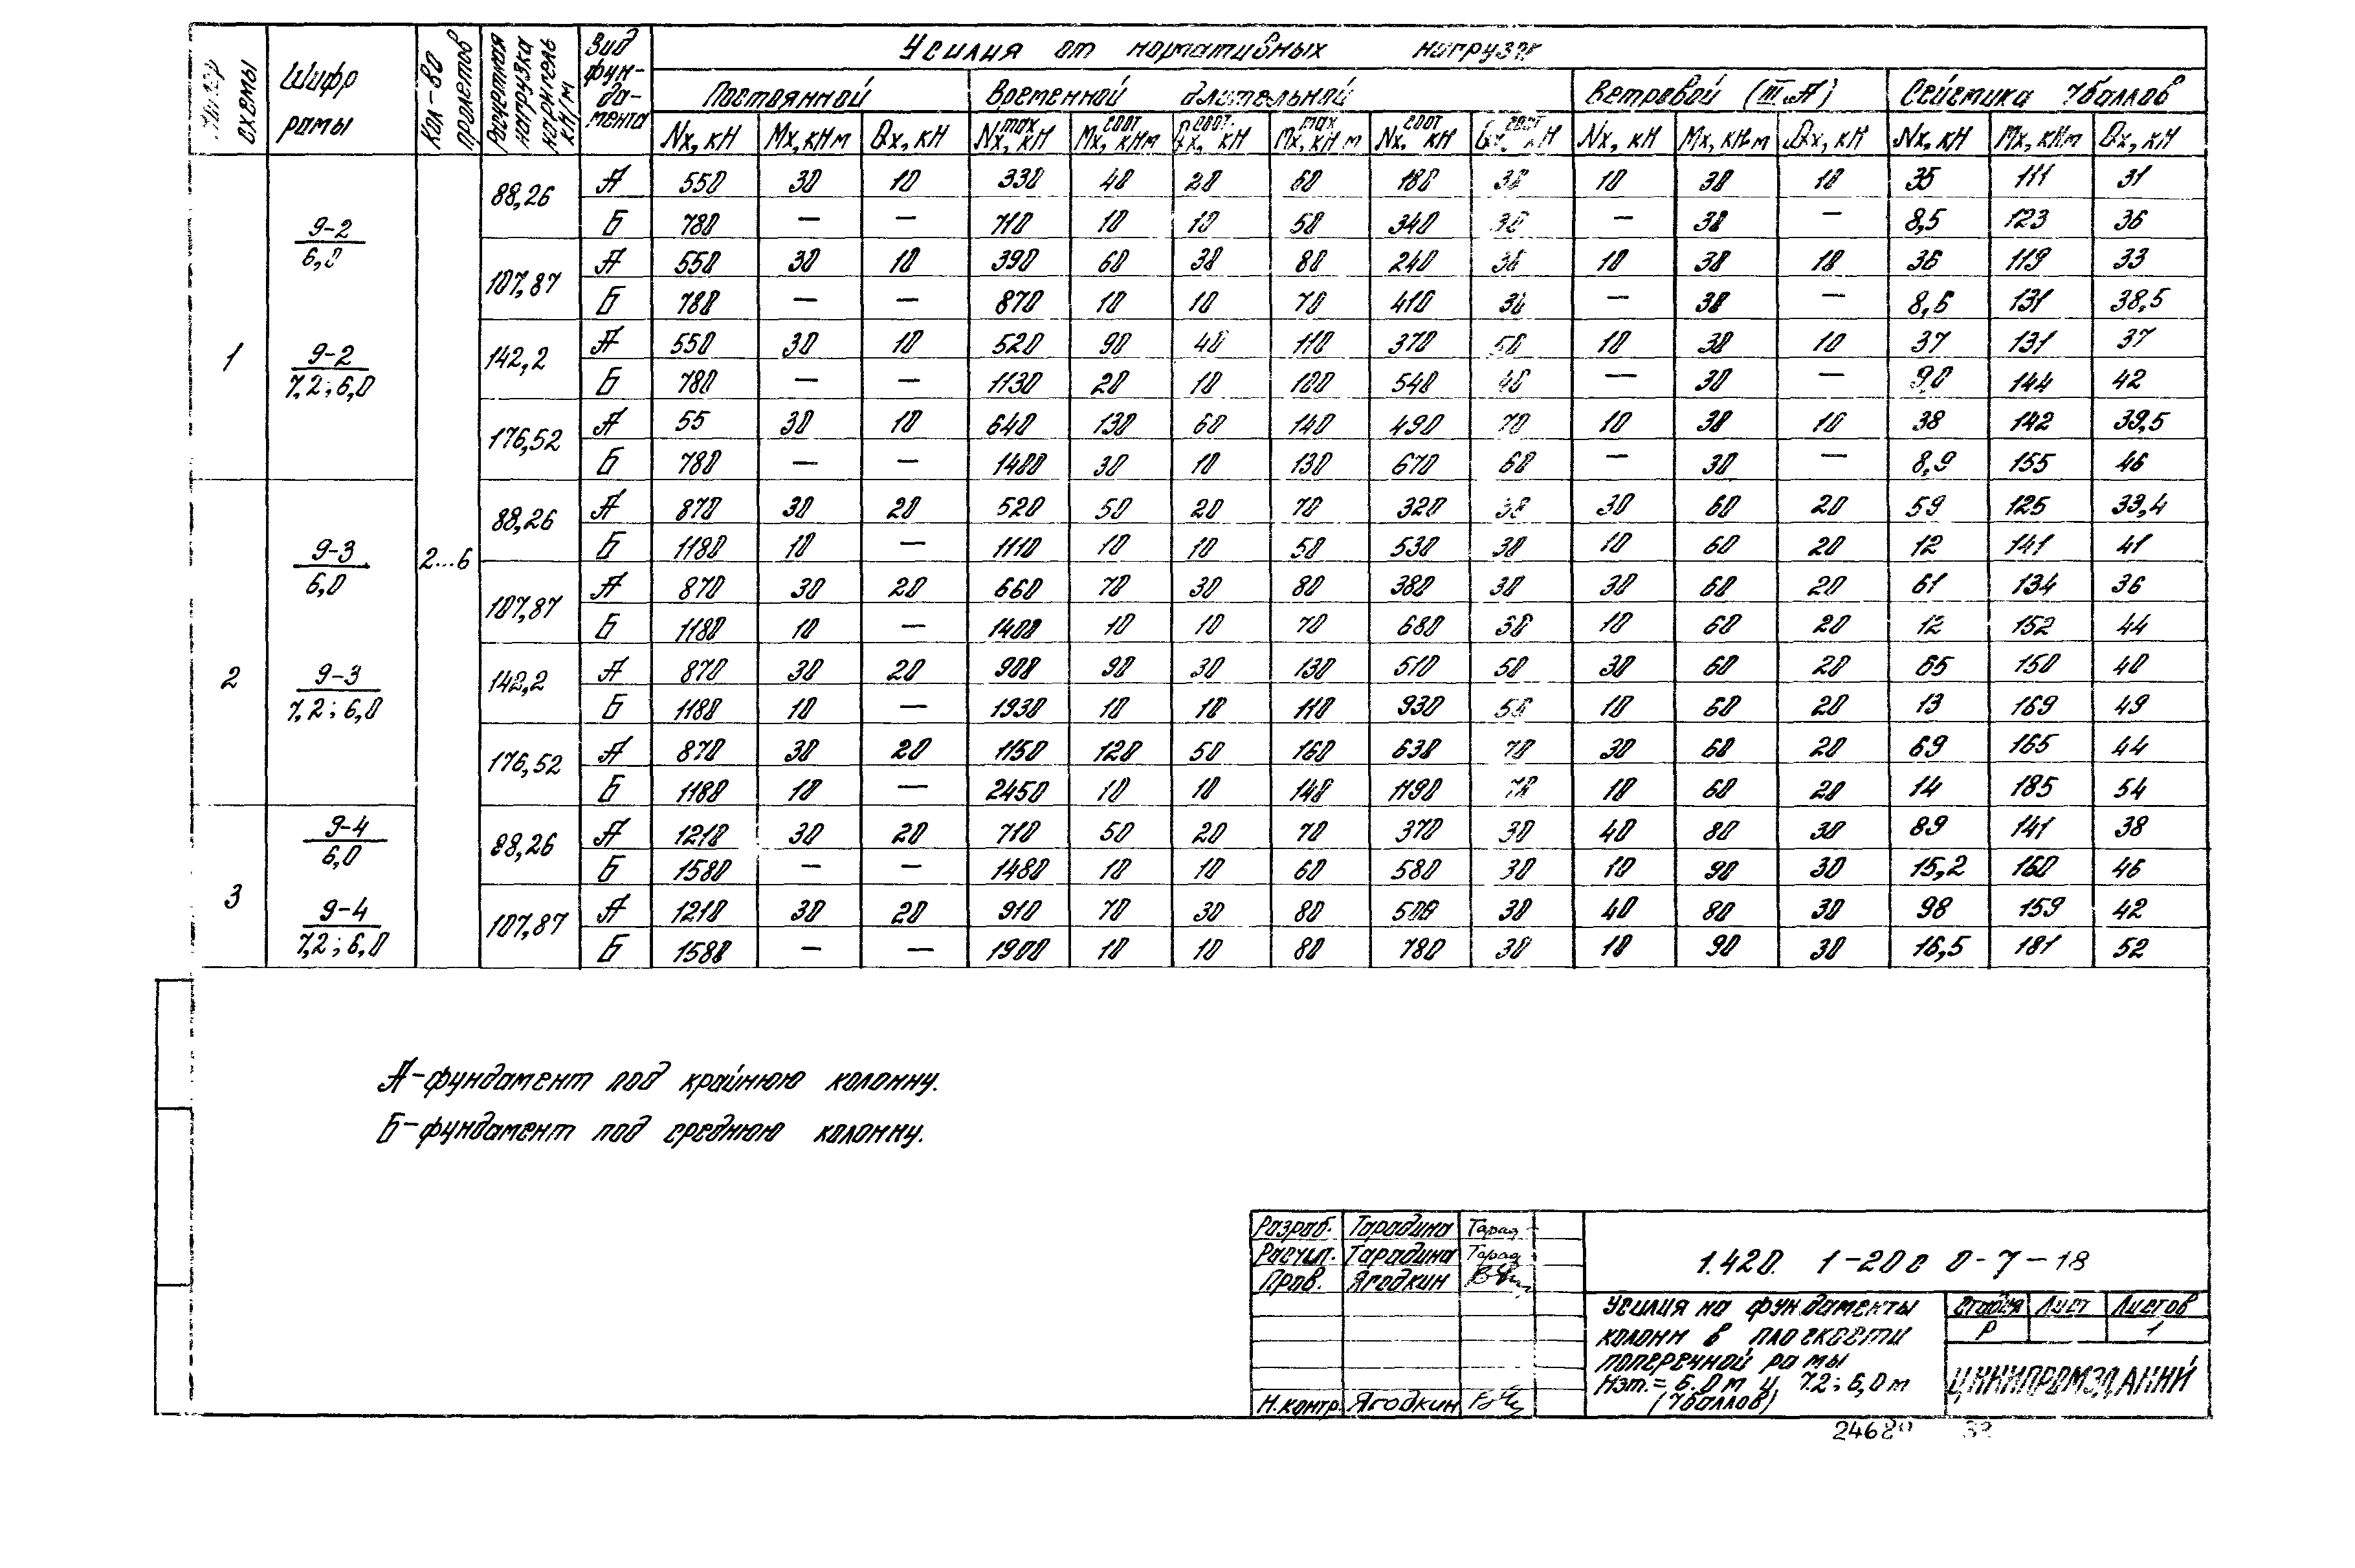 Номер схемы | Шифр рамы | Кол-во пролетов | Расчетная нагрузка на ригель кН/м | Вид фундамента | Усилия от нормативных нагрузк
Постоянной | Временной длительной | Ветровой (III „А) | Сейсмика 7баллов
Nх, кН | Мх, кНм | Qх, кН | Nх max, кН | Мх соот, кНм | Qх соот., кН | Мх max, кНм | Nх соот, кН | Qх соот, кН | Nх, кН | Мх, кНм | Qх, кН | Nх, кН | Мх, кНм | Qх, кН
1 | 9-2/6,0 | 9-2/7,2; 6,0 | 2...6
88,26 | А | 550 | 30 | 10 | 330 | 40 | 20 | 60 | 180 | 30 | 10 | 30 | 10 | 35 | 111 | 31
Б | 780 | — | — | 710 | 10 | 10 | 50 | 340 | 30 | — | 30 | — | 8,5 | 123 | 36
107,87 | А | 550 | 30 | 10 | 390 | 60 | 30 | 80 | 240 | 30 | 10 | 30 | 10 | 36 | 119 | 33
Б | 780 | — | — | 870 | 10 | 10 | 70 | 410 | 30 | — | 30 | — | 8,6 | 131 | 38,5
142,2 | А | 550 | 30 | 10 | 520 | 90 | 40 | 110 | 370 | 50 | 10 | 30 | 10 | 37 | 131 | 37
Б | 780 | — | — | 1130 | 20 | 10 | 100 | 540 | 40 | — | 30 | — | 9,0 | 144 | 42
176,52 | А | 55 | 30 | 10 | 640 | 130 | 60 | 140 | 490 | 70 | 10 | 30 | 10 | 38 | 142 | 39,5
Б | 780 | — | — | 1400 | 30 | 10 | 130 | 670 | 60 | — | 30 | — | 8,9 | 155 | 46
2 | 9-3/6,0 | 9-3/7,2; 6,0
88,26 | А | 870 | 30 | 20 | 520 | 50 | 20 | 70 | 320 | 30 | 30 | 60 | 20 | 59 | 125 | 33,4
Б | 1180 | 10 | — | 1110 | 10 | 10 | 50 | 530 | 30 | 10 | 60 | 20 | 12 | 141 | 41
107,87 | А | 870 | 30 | 20 | 660 | 70 | 30 | 80 | 380 | 30 | 30 | 60 | 20 | 61 | 134 | 36
Б | 1180 | 10 | — | 1400 | 10 | 10 | 70 | 680 | 30 | 10 | 60 | 20 | 12 | 152 | 44
142,2 | А | 870 | 30 | 20 | 900 | 90 | 30 | 130 | 510 | 50 | 30 | 60 | 20 | 65 | 150 | 40
Б | 1180 | 10 | — | 1930 | 10 | 10 | 110 | 930 | 50 | 10 | 60 | 20 | 13 | 169 | 49
176,52 | А | 870 | 30 | 20 | 1150 | 120 | 50 | 160 | 630 | 70 | 30 | 60 | 20 | 69 | 165 | 44
Б | 1180 | 10 | — | 2450 | 10 | 10 | 140 | 1190 | 70 | 10 | 60 | 20 | 14 | 185 | 54
3 | 9-4/6,0 | 9-4/7,2; 6,0
88,26 | А | 1210 | 30 | 20 | 710 | 50 | 20 | 70 | 370 | 30 | 40 | 80 | 30 | 89 | 141 | 38
Б | 1580 | — | — | 1480 | 10 | 10 | 60 | 580 | 30 | 10 | 90 | 30 | 15,2 | 160 | 46
107,87 | А | 1210 | 30 | 20 | 910 | 70 | 30 | 80 | 500 | 30 | 40 | 80 | 30 | 98 | 159 | 42
Б | 1580 | — | — | 1900 | 10 | 10 | 80 | 780 | 30 | 10 | 90 | 30 | 16,5 | 181 | 52
А-фундамент под крайнюю колонну.
Б-фундамент под среднюю колонну.
Разраб. Тарадина Тарад
Расчит. Тарадина Тарад
Пров. Ягодкин
Н.контр. Ягодкин
1.420. 1-20с 0-7-18
Усилия на фундаменты
колонн в плоскости
поперечной рамы
Нэт.= 6.0м и 7.2; 6,0м
(7баллов)
Стадия Лист Листов
Р 1
ЦНИИПРОМЗДАНИЙ